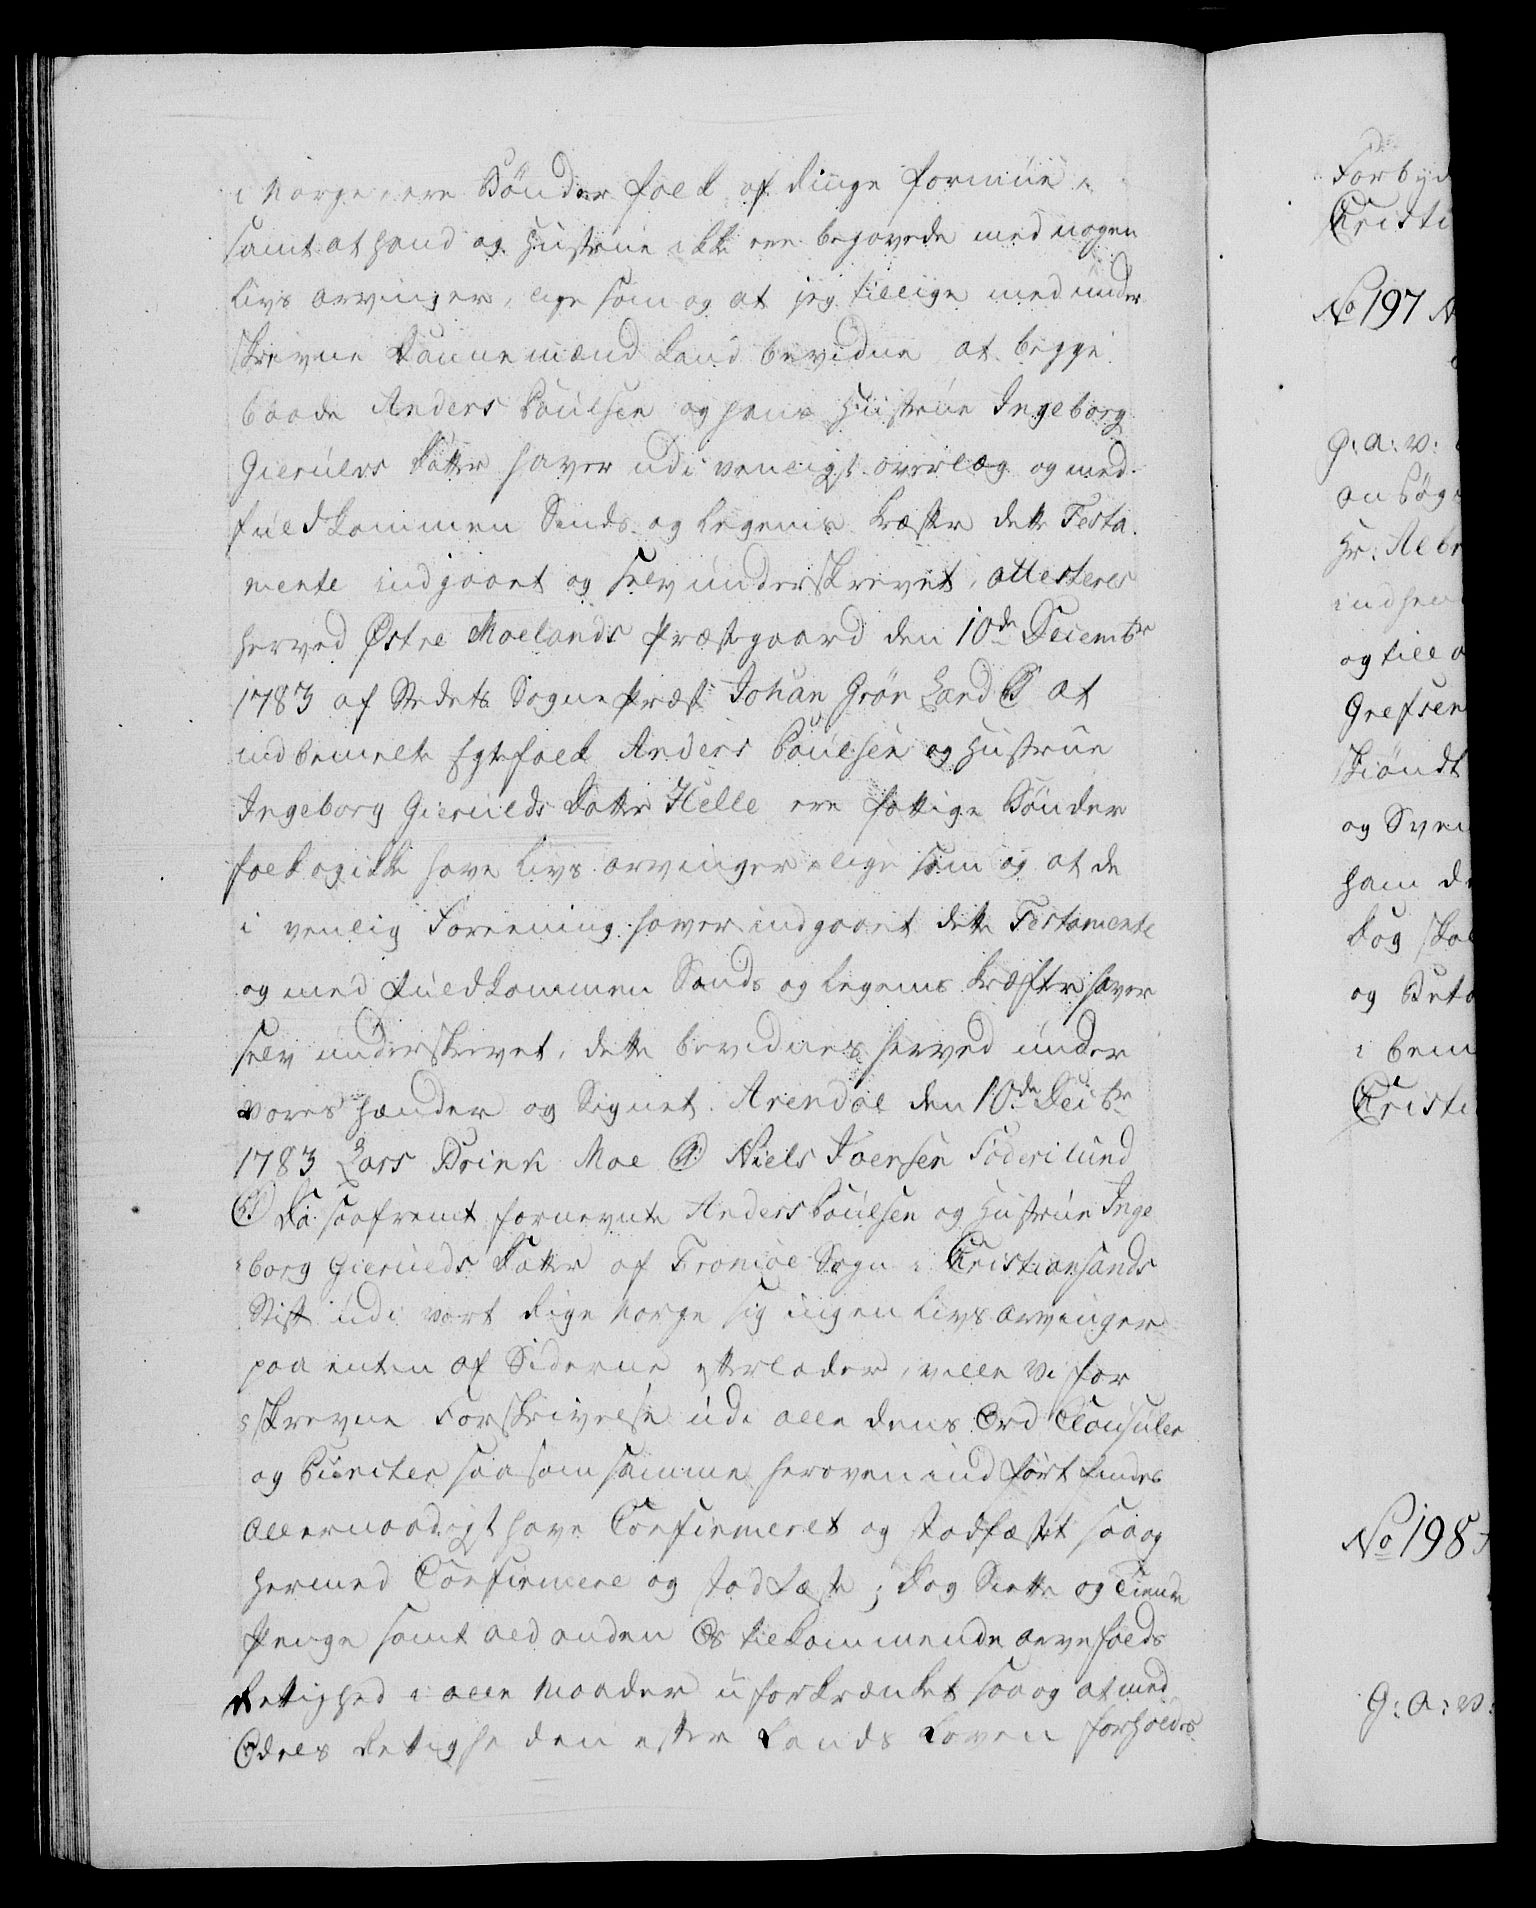 i Norge, ere Bönder folk af ringe formue
samt at hand og Hustrue ikke ere begavede med nogen
Livs arvinger, lige som og at jeg tillige med under
skrevne Dannemænd kand bevidne at begge
baade Anders Poulsen og hans Hustrue Ingeborg
Gierulvs Datter haver udi venligst overlæg og med
fuldkommen Sinds og Legems Kræfter dette Testa
mente indgaaet og selv underskrevet, attesteres
herved Østre Moelands Præstegaard den 10de Decembr
1783 af Stedets Sogne Præst Johan Grön Lund At
indbemelte Egtefolk Anders Poulsen og Hustrue
Ingeborg Gierulds Datter Helle ere fattige Bönder
folk og ikke have Livs arvinger elige som og at de
i venlig Foreening haver indgaaet dette Testamente
og med fuldkommen Sinds og Legems Kræfter haver
selv underskrevet, dette bevidnes herved under
vores hænder og Signet. Arendal den 10de Decbr
1783 Lars Brink Moe Niels Joensen Söderlund
Da saafremt fornevnte Anders Poulsen og Hustrue Inge
borg Gierulds Datter af Tromöe Sogn i Christiansands
Stift udi vort Rige Norge sig ingen Livs arvinger
paa enten af Siderne efterlader, ville Vi for
skrevne Forskrivelse udi alle dens Ord Clausuler
og Puncter saasom samme heroven indfört findes
allernaadigst have Confirmeret og stadfæstet saa og
hermed Confirmere og stadfæste; Dog Siette og Tiende
Penge samt ald anden Os tilkommende arvefalds
Rettighed i alle Maader uforkrænket saa og at med
Odels Rettigheden efter Lands Loven forholdes
Forbyd
Christi
No 197
G: A: V:
ansög
Hr. Albr
indhen
og till
Grefsen
skiöndt
og Sven
ham
Dog skal
og Beta
i bem
Christi
No 198
G: A: V: